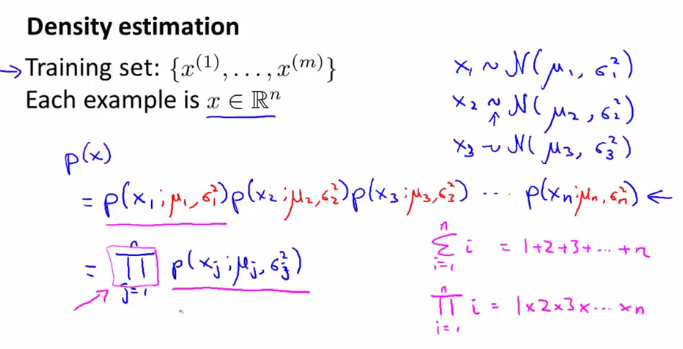 Density estimation
→ Training set: {x^(1), ..., x^(m)}
Each example is x ∈ ℝ^n
x₁ ~ N(μ₁, σ₁²)
x₂ ~ N(μ₂, σ₂²)
x₃ ~ N(μ₃, σ₃²)
p(x)
= p(x₁; μ₁, σ₁²) p(x₂; μ₂, σ₂²) p(x₃; μ₃, σ₃²) ... p(xₙ; μₙ, σₙ²) ←
= ∏_{j=1}^{n} p(xⱼ; μⱼ, σⱼ²)
∑_{i=1}^{n} i = 1+2+3+...+n
∏_{i=1}^{n} i = 1×2×3×...×n